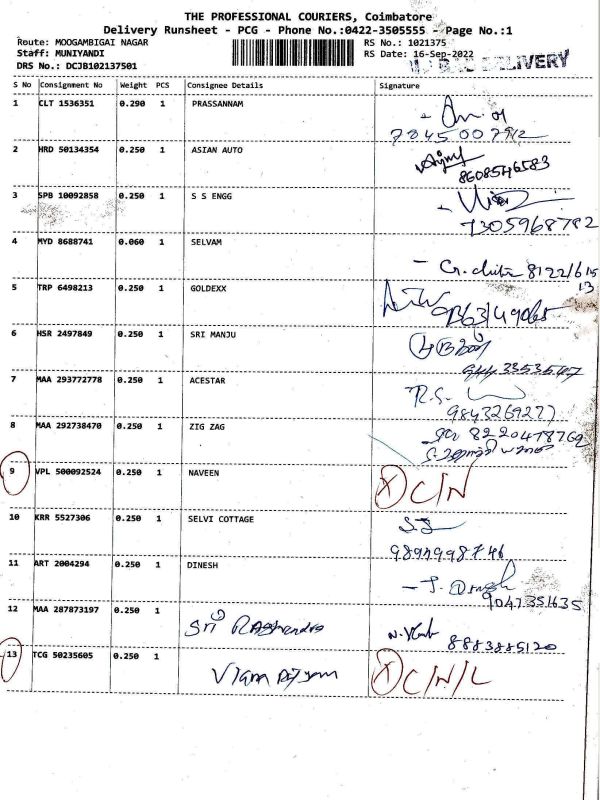 THE PROFESSIONAL COURIERS, Coimbatore
Delivery Runsheet - PCG - Phone No.:0422-3505555 - Page No.:1
Route: MOOGAMBIGAI NAGAR RS No.: 1021375
Staff: MUNIYANDI RS Date: 16-Sep-2022
DRS No.: DCJB102137501 DELIVERY
S No Consignment No Weight PCS Consignee Details Signature
1 CLT 1536351 0.290 1 PRASSANNAM
7345007912
2 HRD 50134354 0.250 1 ASIAN AUTO
8608546583
3 SPB 10092858 0.250 1 S S ENGG
7305968782
4 MYD 8688741 0.060 1 SELVAM
8122/615
13
5 TRP 6498213 0.250 1 GOLDEXX
6 HSR 2497849 0.250 1 SRI MANJU
944 3353547
7 MAA 293772778 0.250 1 ACESTAR
R.S.
9843269277
8 MAA 292738470 0.250 1 ZIG ZAG
8220478762
9 VPL 500092524 0.250 1 NAVEEN X C/N
10 KRR 5527306 0.250 1 SELVI COTTAGE
9894998746
11 ART 2004294 0.250 1 DINESH
9047351635
12 MAA 287873197 0.250 1 Sri Raghendra
8883885120
13 TCG 50235605 0.250 1 X C/N/L